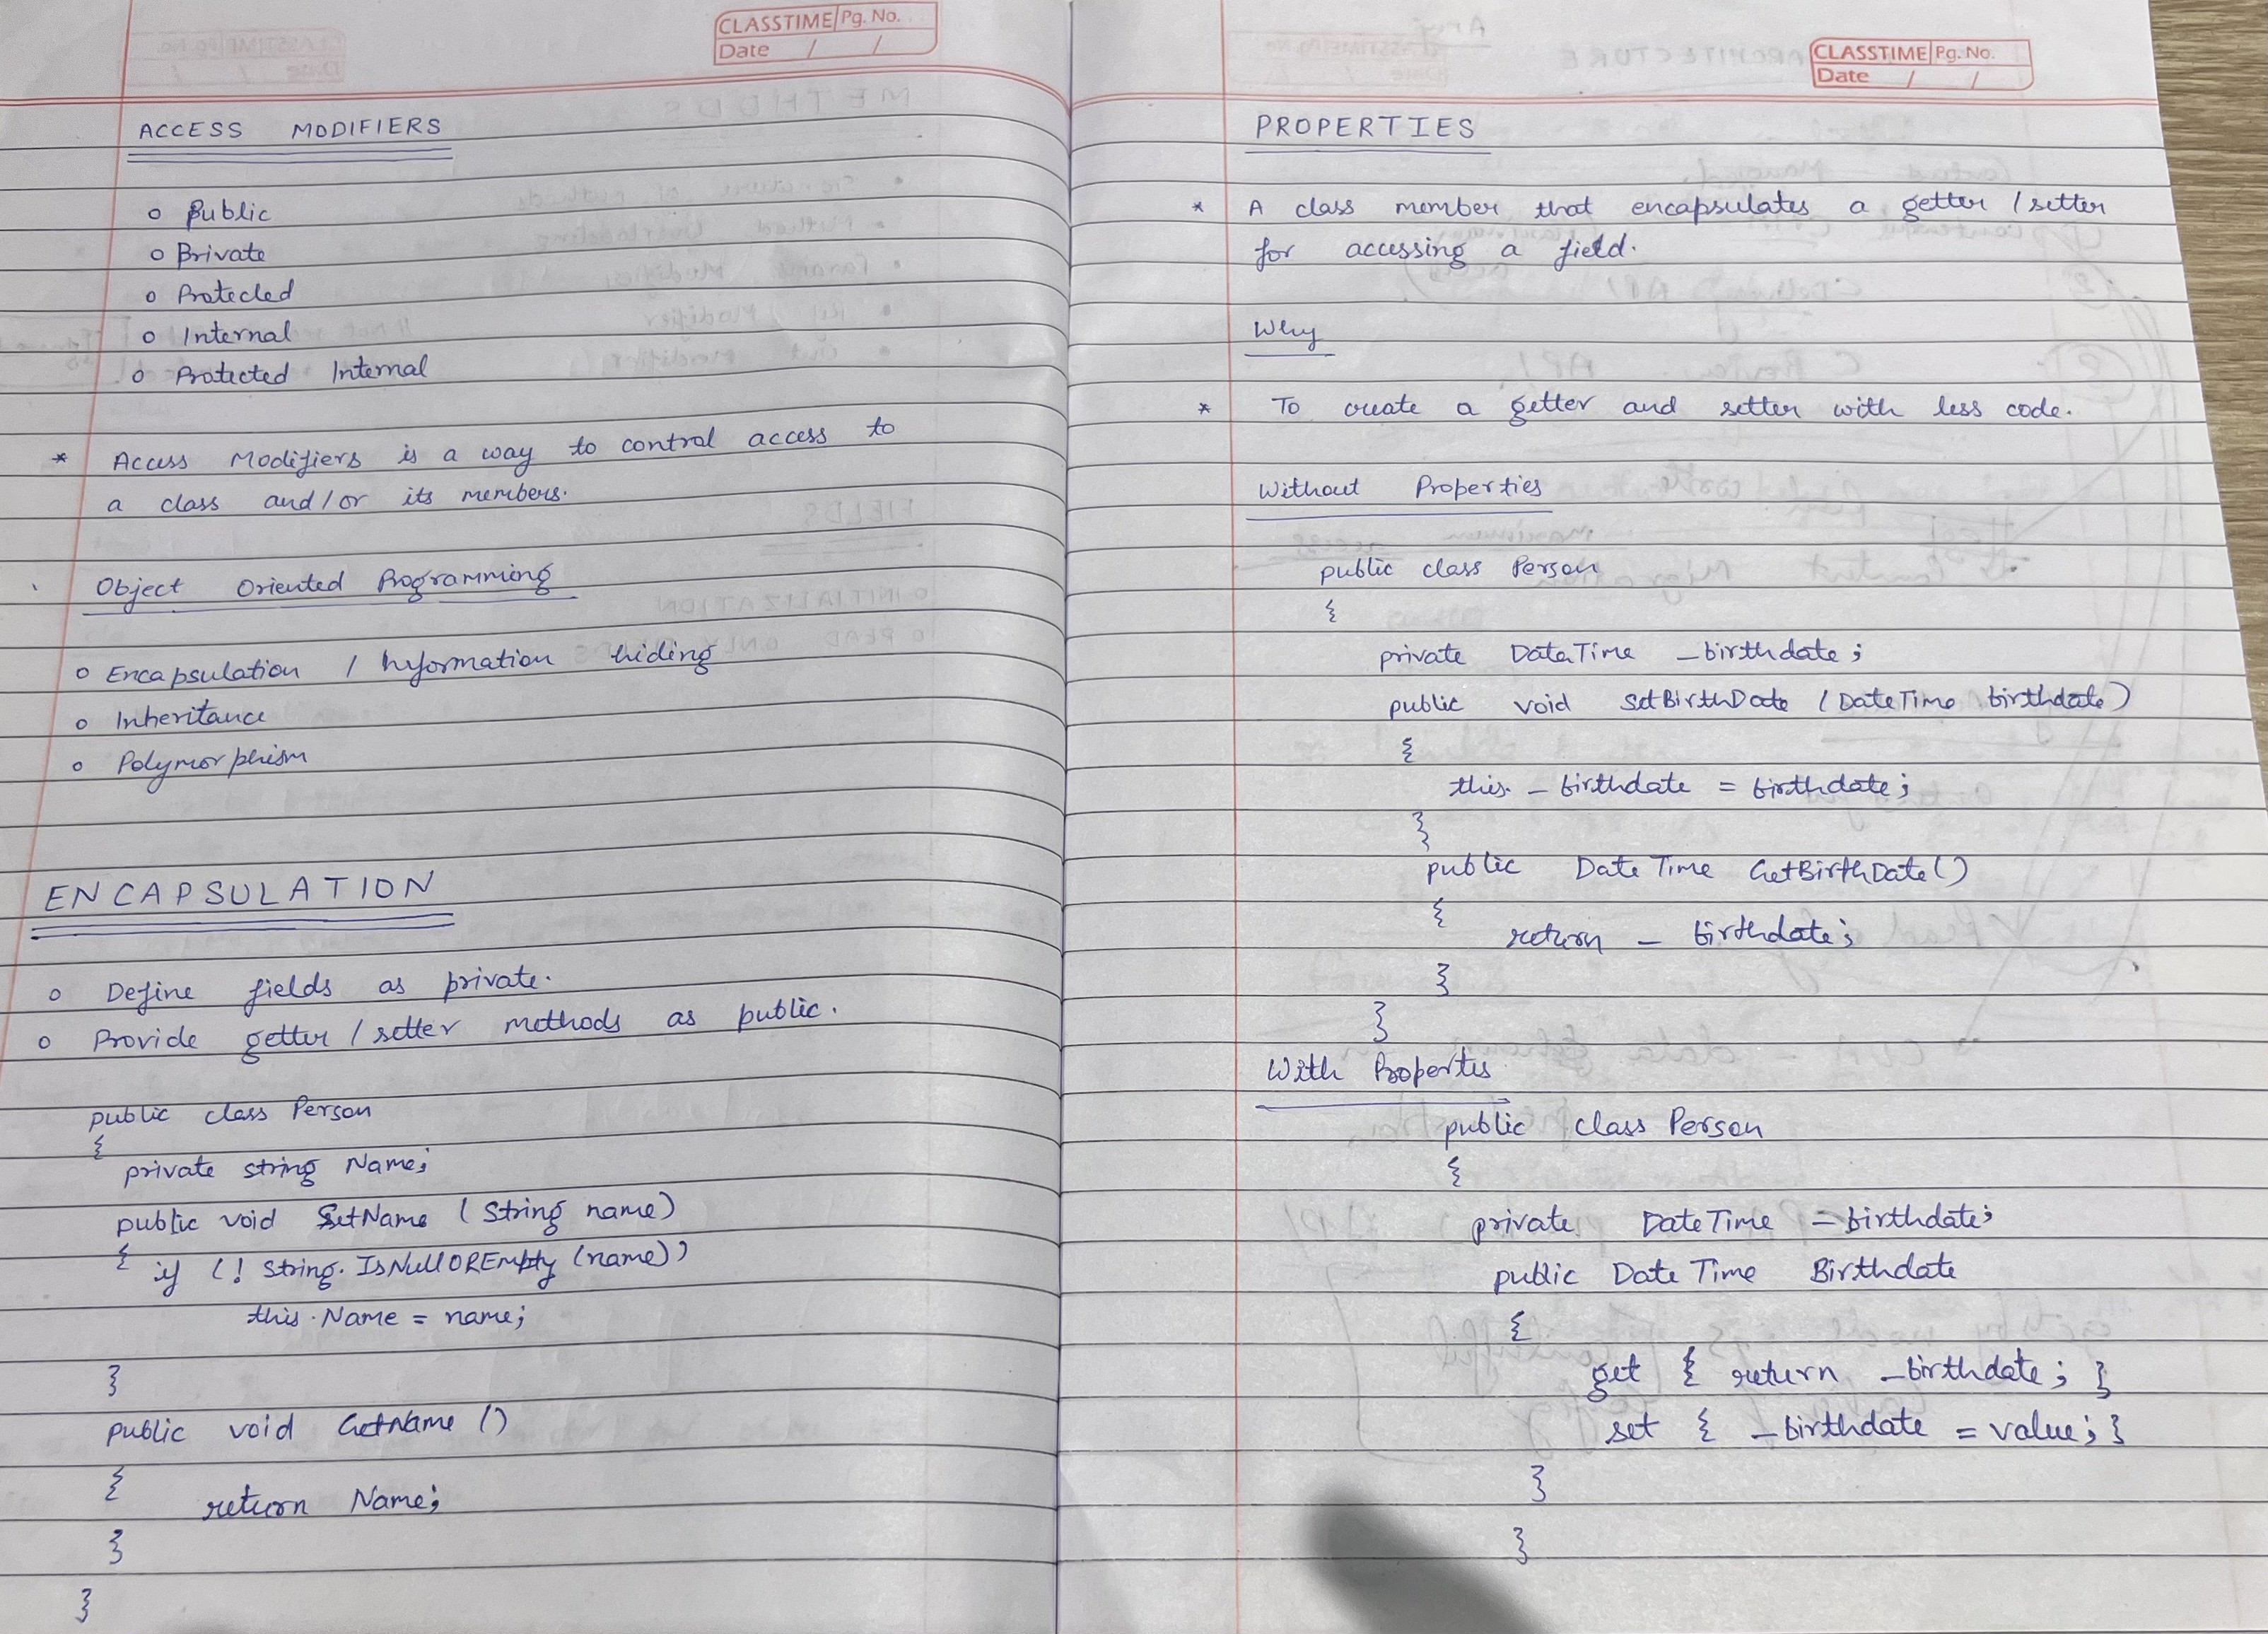 CLASSTIME Pg. No.
Date / /
ACCESS MODIFIERS
o Public
o Private
o Protected
o Internal
o Protected Internal
* Access Modifiers is a way to control access to
a class and/or its members.
Object Oriented Programming
o Encapsulation / Information hiding
o Inheritance
o Polymorphism
ENCAPSULATION
o Define fields as private.
o Provide getter / setter methods as public.
public class Person
{
private string Name;
public void SetName (String name)
{ if (! String.IsNullOREmpty (name))
this.Name = name;
}
public void GetName ()
{
return Name;
}
}
CLASSTIME Pg. No.
Date / /
PROPERTIES
* A class member that encapsulates a getter / setter
for accessing a field.
Why
* To create a getter and setter with less code.
Without Properties
public class Person
{
private DateTime _birthdate;
public void SetBirthDate (DateTime birthdate)
{
this._birthdate = birthdate;
}
public DateTime GetBirthDate()
{
return _ birthdate;
}
}
With Propertis
public class Person
{
private DateTime _birthdate;
public DateTime Birthdate
{
get { return _birthdate; }
set { _birthdate = value; }
}
}